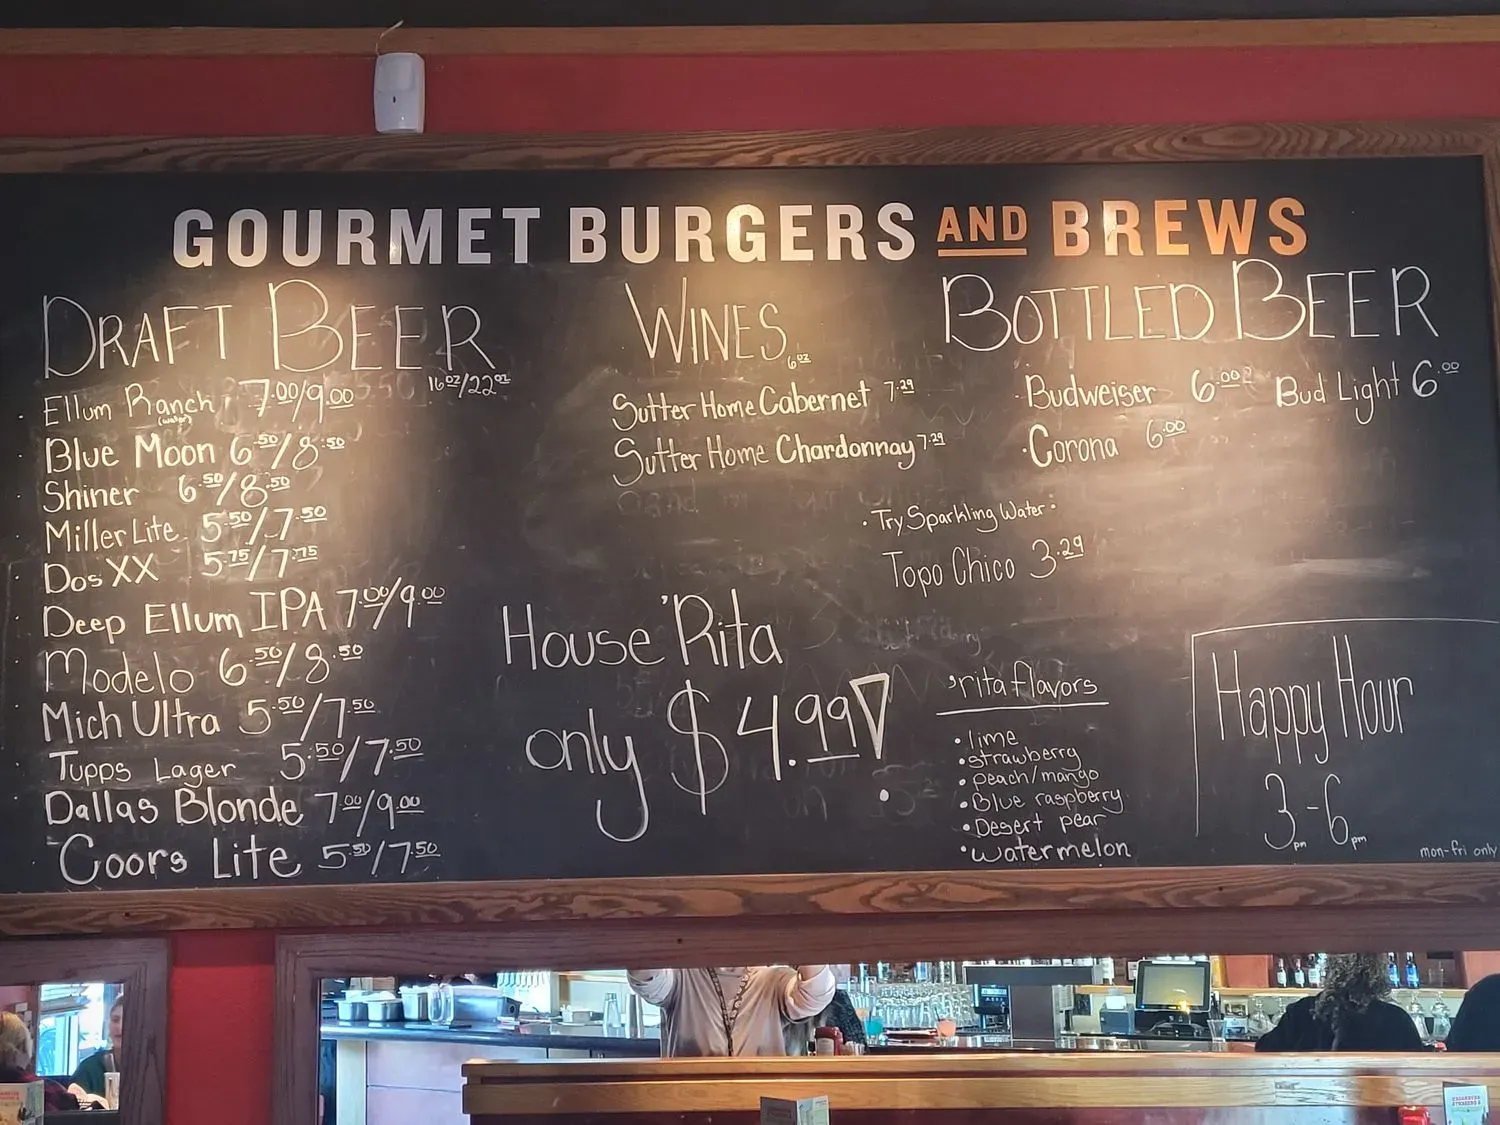 GOURMET BURGERS AND BREWS
DRAFT BEER
16oz/22oz
· Ellum Ranch 7.00/9.00
(water)
· Blue Moon 6.50/8.50
· Shiner 6.50/8.50
· Miller Lite 5.50/7.50
· Dos XX 5.75/7.75
· Deep Ellum IPA 7.00/9.00
· Modelo 6.50/8.50
· Mich Ultra 5.50/7.50
· Tupps Lager 5.50/7.50
· Dallas Blonde 7.00/9.00
· Coors Lite 5.50/7.50
WINES 6oz
Sutter Home Cabernet 7.29
Sutter Home Chardonnay 7.29
BOTTLED BEER
· Budweiser 6.00 Bud Light 6.00
· Corona 6.00
· Try Sparkling Water ·
Topo Chico 3.29
House 'Rita
only $4.99!
'rita flavors
· lime
· strawberry
· peach/mango
· Blue raspberry
· Desert pear
· watermelon
Happy Hour
3pm-6pm
mon-fri only